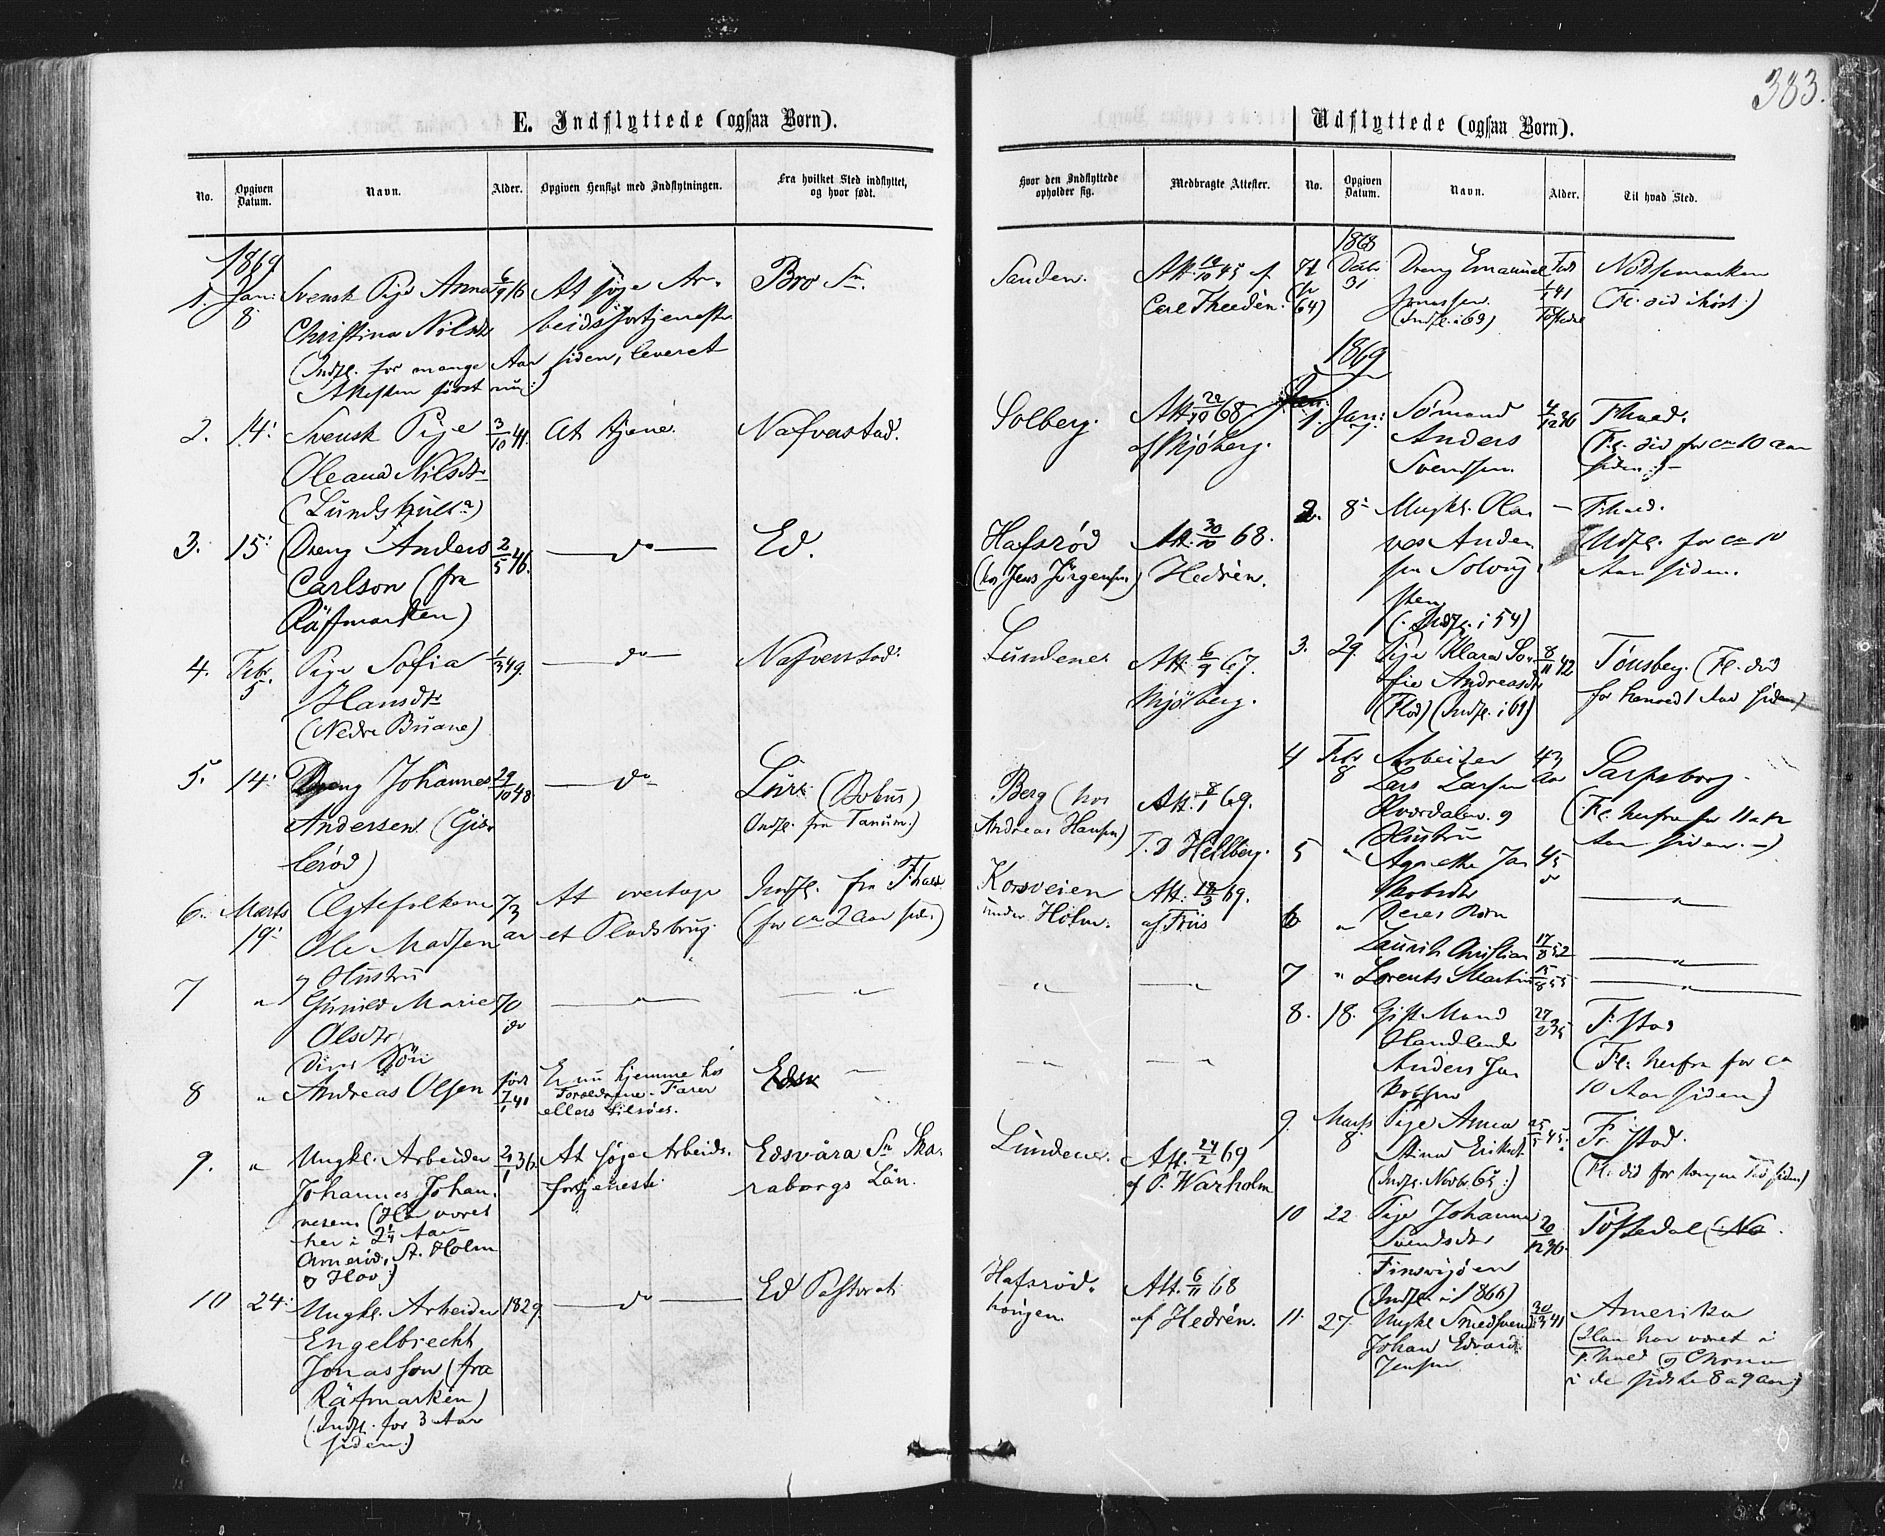 383.
E. Indflyttede (ogsaa Børn).
No.
Opgiven Datum.
Navn.
Alder.
Opgiven Hensigt med Indflytningen.
Fra hvilket Sted indflyttet, og hvor født.
Hvor den Indflyttede opholder sig.
Medbragte Attester.
1869
1. Jan: 8
Svensk Pige Anna
Christina Nilsdtr
(Indfl. for mange Aar siden, leveret
Attesten først nu:)
6/9 16
At søge Ar-
beidsfortjeneste
Bro Sn
Sanden.
Att. 45 f.
Carl Theedén.
2. 14:
Svensk Pige
Oleana Nilsdtr
3/10 41
At tjene.
Nafverstad.
Solberg.
Att. 22/10 68
af Mjöberg.
3. 15:
Dreng Anders
Carlson (fra
Räfmarken)
2/5 46.
— do —
Ed.
Hafsrød
(hos Jens Jörgensen)
Att. 30/10 68.
Hedrén.
4. Febr. 5
Pige Sofia
Hansdtr
(Nedre Buane)
1/3 49.
— do —
Nafverstad.
Lundene
Att. 6/9 67.
Mjöberg.
5. 14:
Dreng Johannes
Andersen. (Gis-
lerød)
29/10 48
— do —
Lur (Bohus)
Indfl. fra Tanum.)
Berg (hos
Andreas Hansen)
Att. 8/1 69.
T. D Hellberg.
6. Marts 19:
Ægtefolkene
Ole Madsen
og Hustru
73 aar
At overtage
et Pladsbrug.
Indfl. fra Fhald
(for ca 2 Aar sid.)
Korsveien
under Holm.
Att. 18/3 69.
af Friis
7 "
Gunild Marie
Olsdtr
70 do
— " —
— " —
— " —
— " —
8 "
Andreas Olsen
født 1/1 41
Er nu hjemme hos
Forældrene. Farer
ellers tilsøes.
— " —
— " —
— " —
9. "
Ungkl. Arbeider
Johannes Johan-
nesen (Har været
her i 2 1/4 Aar
Amerød, St. Holm
& Hov:)
2/1 36.
At søge Arbeids-
fortjeneste
Edsvåra Sn Ska-
raborgs Län.
Lundene.
Att. 24/2 69
af P. Warholm
10 24:
Ungkl. Arbeider
Engelbrecht
Jonasson (fra
Räfmarken)
(Indfl. for 3 Aar
siden:)
1829.
— do —
Ed Pastorat
Hafsrød-
höigen.
Att. 6/11 68
af Hedrén.
Udflyttede (ogsaa Børn).
No.
Opgiven Datum.
Navn.
Alder.
Til hvad Sted.
1868
Decbr 31
Dreng Emanuel
Jonassen.
(Indfl. i 63)
Født 1/1 41
Töftedal
Nössemarken
(Fl. did i høst.)
1869
1. Jan: 7.
Sømand
Anders
Svendsen
4/12 36
Fhald.
(Fl. did for ca 10 Aar
siden:)
2. 8
Ungkl. Ola-
ves Ander-
sen
(Indfl. i 54)
—
Fhald.
(Udfl. for ca 10
Aar siden.
3. 29.
Pige Klara So-
fie Andreasdtr
(Flod) (Indfl. i 61)
8/11 42
Tønsberg. (Fl. did
for henved 1 Aar siden)
4 Febr 8
Arbeider
Lars Larsen
og
Hustru
43 Aar
Sarpsborg.
(Fl. herfra for 11 a 12
Aar siden.)
5 "
Agnethe Ja-
kobsdtr
45 do
— " —
Deres Børn
6 "
Laurits Christian
17/8 52
— " —
7 "
Lorents Martin
15/8 55
— " —
8. 18.
Gift Mand
Handlende
Anders Ja-
kobsen
27/2 35
F.stad
(Fl. herfra for ca
10 Aar siden)
9. Marts 8.
Pige Anna
Stina Eriksdtr
(Indfl. Novbr 65:)
25/5 45.
Fr.stad.
(Fl. did for længere Tid siden)
10 22
Pige Johanne
Svendsdtr
(Indfl. i 1866)
20/12 36.
Töftedal
11. 27.
Ungkl Smedsvend
Johan Edvard
Jensen
30/3 41
Amerika
(Han har været i
F.hald og Chrania
i de sidste 8 a 9 Aar)